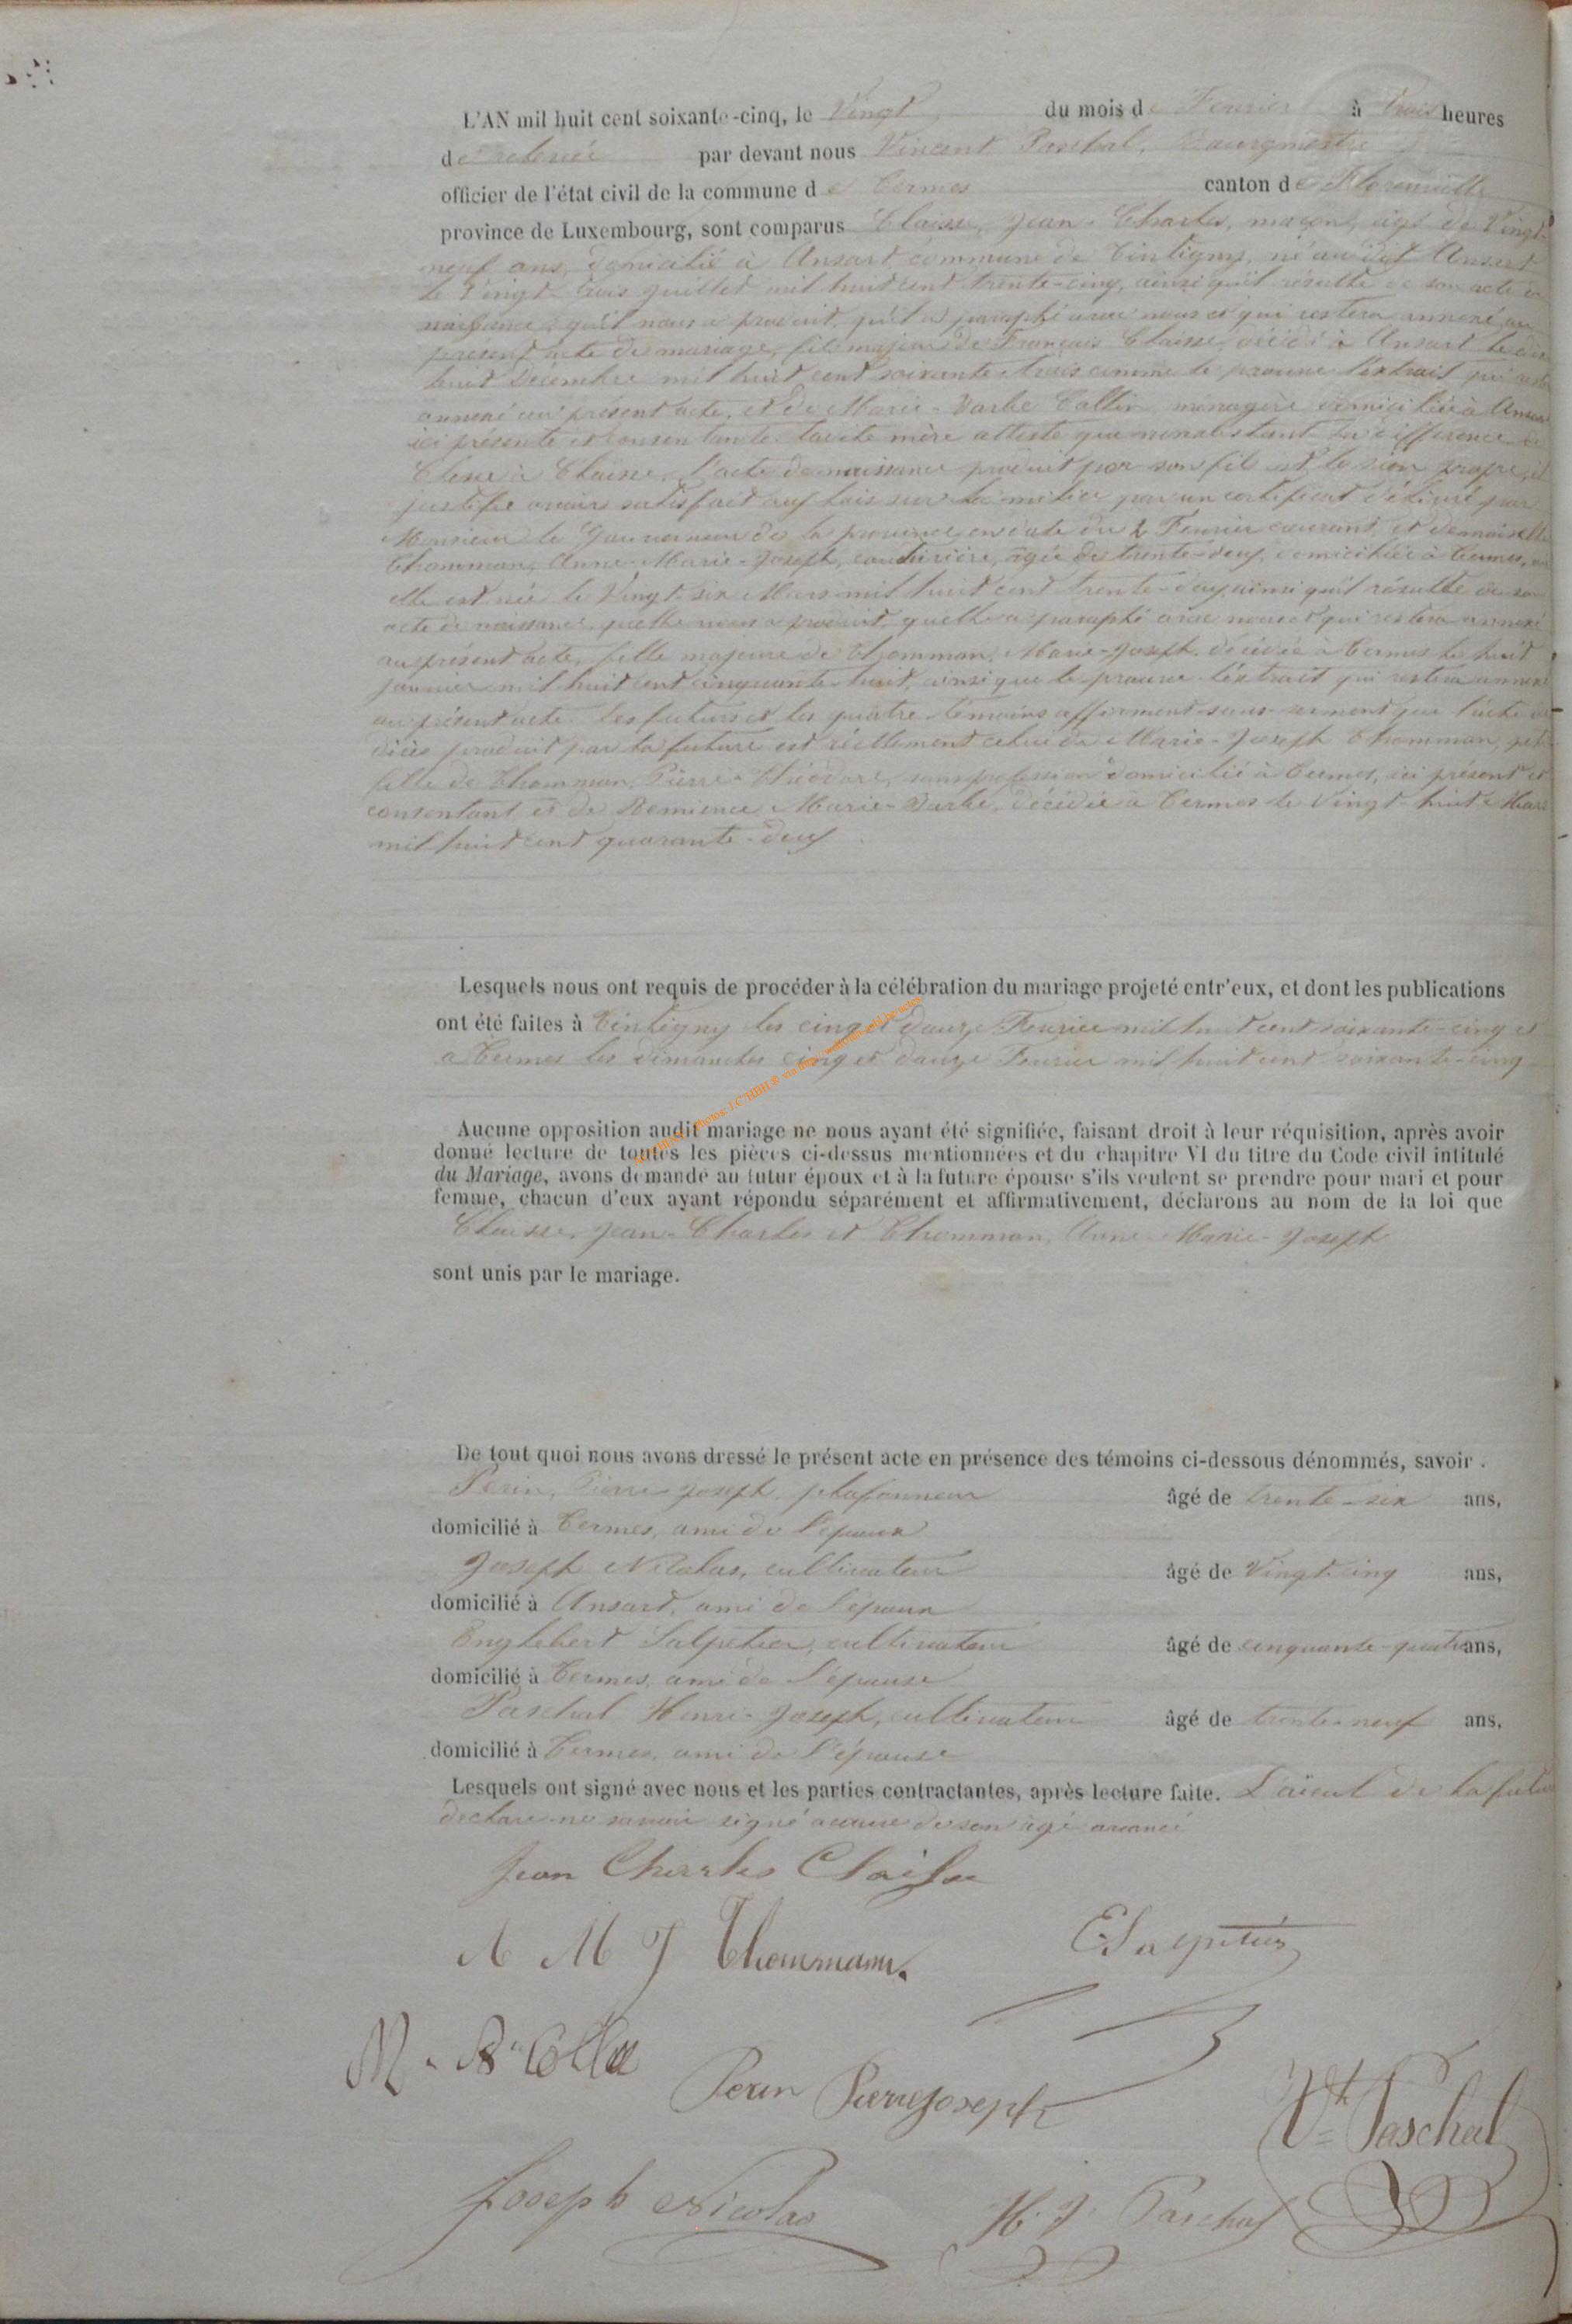 L'AN mil huit cent soixante-cinq, le Vingt du mois de Fevrier à trois heures
de relevée par devant nous Vincent Paschal, Bourgmestre
officier de l'état civil de la commune de Termes canton de Florenville
province de Luxembourg, sont comparus Claisse, Jean-Charles, maçon, agé de Vingt-
neuf ans, domicilié à Ansart commune de Tintigny, né au dit Ansart
le Vingt-trois Juillet mil huit cent trente-cinq, ainsi qu'il résulte de son acte de
naissance qu'il nous a produit, qu'il a paraphé avec nous et qui restera annexé au
présent acte de mariage, fils majeur de François Claisse, décédé à Ansart le dix
huit Décembre mil huit cent soixante-trois comme le prouve l'extrait qui restera
annexé au présent acte, et de Marie-Barbe Collin ménagère domiciliée à Ansart
ici présente et consentante. La dite mère atteste que nonobstant la différence de
Clesse à Claisse, l'acte de naissance produit par son fils est le sien propre, il
justifie avoir satisfait aux lois sur la milice par un certificat délivré par
Monsieur le Gouverneur de la province, en date du Fevrier courant, et demoiselle
Thomman, Anne-Marie-Joseph, couturière, agée de trente-deux, domiciliée à Termes, où
elle est née le Vingt-six Mars mil huit cent trente-deux, ainsi qu'il résulte de son
acte de naissance qu'elle nous a produit, qu'elle a paraphé avec nous et qui restera annexé
au présent acte, fille majeure de Thomman, Marie-Joseph, décédée à Termes le huit
janvier mil huit cent cinquante-huit, ainsi que le prouve l'extrait qui restera annexé
au présent acte. Les futurs et les quatre témoins affirment sous serment que l'acte de
décès produit par la future est réellement celui de Marie-Joseph Thomman, petite
fille de Thomman, Pierre-Théodore, sans profession domicilié à Termes, ici présent et
consentant et de Remience Marie-Barbe, décédée à Termes le Vingt-huit Mars
mil huit cent quarante-deux.
Lesquels nous ont requis de procéder à la célébration du mariage projeté entr'eux, et dont les publications
ont été faites à Tintigny les cinq et douze Fevrier mil huit cent soixante-cinq et
a Termes les dimanches cinq et douze Fevrier mil huit cent soixante-cinq
Aucune opposition audit mariage ne nous ayant été signifiée, faisant droit à leur réquisition, après avoir
donné lecture de toutes les pièces ci-dessus mentionnées et du chapitre VI du titre du Code civil intitulé
du Mariage, avons demandé au futur époux et à la future épouse s'ils veulent se prendre pour mari et pour
femme, chacun d'eux ayant répondu séparément et affirmativement, déclarons au nom de la loi que
Claisse, Jean-Charles et Thomman, Anne-Marie-Joseph
sont unis par le mariage.
De tout quoi nous avons dressé le présent acte en présence des témoins ci-dessous dénommés, savoir.
Perin, Pierre-Joseph, plafonneur âgé de trente-six ans,
domicilié à Termes, ami de l'époux
Joseph Nicolas, cultivateur âgé de Vingt-cinq ans,
domicilié à Ansart, ami de l'époux
Englebert Salpetier, cultivateur âgé de cinquante-quatre ans,
domicilié à Termes, ami de l'épouse
Paschal Henri-Joseph, cultivateur âgé de trente-neuf ans,
domicilié à Termes, ami de l'épouse
Lesquels ont signé avec nous et les parties contractantes, après lecture faite. L'aïeul de la future
declare ne savoir signé a cause de son âge avancé
Jean Charles Claisse
A M J Thommann.
E Salpetier
M. B. Colla
Perin Pierre Joseph
Vt Paschal
Joseph Nicolas
H. J. Paschal